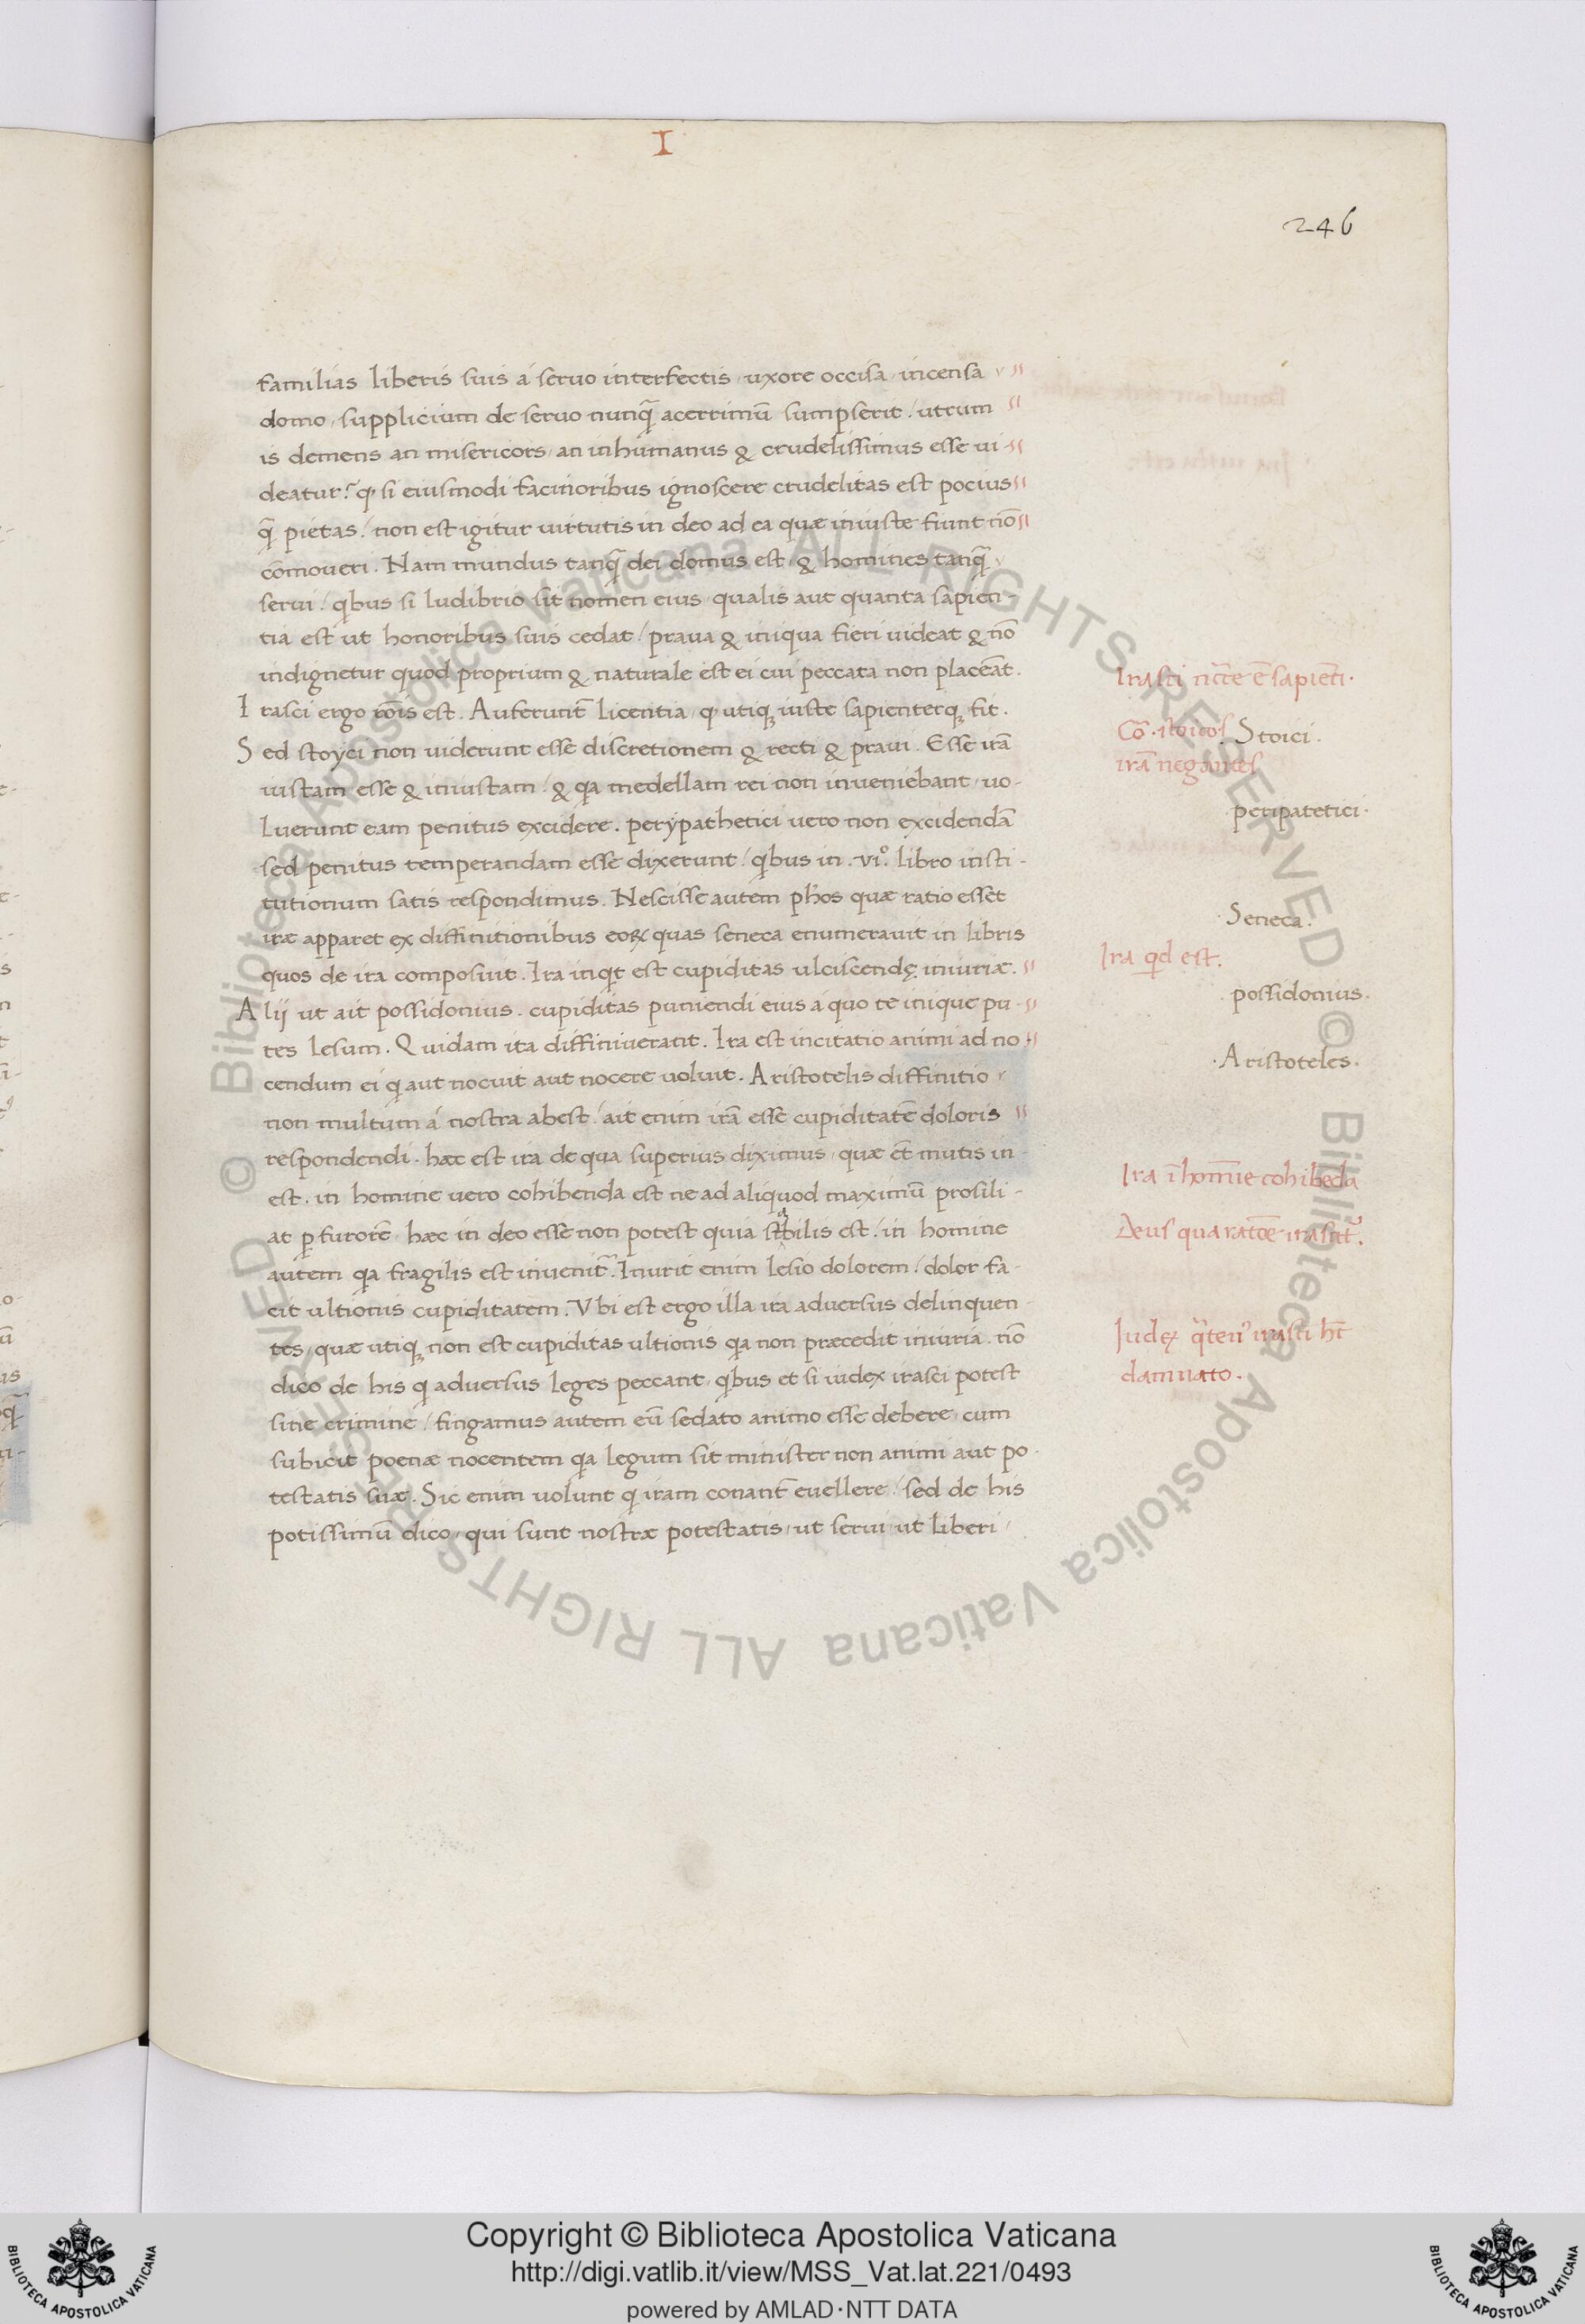 I
246
familias liberis suis á seruo interfectis, uxore occisa, incensa
domo, supplicium de seruo nunq̃ acerrimũ sumpserit / utrum
is demens an misericors, an inhumanus & crudelissimus esse ui-
deatur? q, si eiusmodi facinoribus ignoscere crudelitas est pocius
q̃ pietas / non est igitur uirtutis in deo ad ea quæ iniuste fiunt nõ
cõmoueri. Nam mundus tanq̃ dei domus est, & homines tanq̃
serui / qbus si ludibrio sit nomen eius, qualis aut quanta sapien-
tia est ut honoribus suis cedat / praua & iniqua fieri uideat & nõ
indignetur quod proprium & naturale est ei cui peccata non placeãt.
Irasci ergo rõis est. Auferunt̃ licentia, q, utiq; iuste sapienterq; fit.
Sed stoyci non uiderunt esse discretionem & recti & praui. Esse irã
iustam esse & iniustam / & qa medellam rei non inueniebant, uo-
luerunt eam penitus excidere. perypathetici uero non excidendã
sed penitus temperandam esse dixerunt / qbus in .viº. libro insti-
tutionum satis respondimus. Nescisse autem phos quæ ratio esset
iræ apparet ex diffinitionibus eoꝝ quas seneca enumerauit in libris
quos de ira composuit. Ira inqt est cupiditas ulciscendę iniuriæ.
Alij ut ait possidonius. cupiditas puniendi eius á quo te inique pu-
tes lesum. Quidam ita diffiniuerant. Ira est incitatio animi ad no-
cendum ei q aut nocuit aut nocere uoluit. Aristotelis diffinitio
non multum á nostra abest / ait enim irã esse cupiditatẽ doloris
respondendi. hæc est ira de qua superius diximus, quæ ẽt mutis in-
est. in homine uero cohibenda est ne ad aliquod maximũ prosili-
at ꝑ furorẽ, hæc in deo esse non potest quia stabilis est / in homine
autem qa fragilis est inuenit̃. Inurit enim lesio dolorem / dolor fa-
cit ultionis cupiditatem. Vbi est ergo illa ira aduersus delinquen-
tes / quæ utiq; non est cupiditas ultionis qa non præcedit iniuria. nõ
dico de his q aduersus leges peccant, qbus et si iudex irasci potest
sine crimine / fingamus autem eũ sedato animo esse debere, cum
subicit poenæ nocentem qa legum sit minister non animi aut po-
testatis suæ. Sic enim uolunt q iram conant̃ euellere / sed de his
potissimũ dico, qui sunt nostræ potestatis, ut serui, ut liberi,
Irasci ncc̃e ẽ sapieñti.
Cõ. stoicos
Stoici.
irã negantes
peripatetici.
Seneca.
Ira qd est.
possidonius.
Aristoteles.
Ira ĩ homĩe cohibẽda
Deus qua ratõe irascit̃.
damnato.
© Biblioteca Apostolica Vaticana ALL RIGHTS RESERVED
© Biblioteca Apostolica Vaticana ALL RIGHTS RESERVED
Copyright © Biblioteca Apostolica Vaticana
http://digi.vatlib.it/view/MSS_Vat.lat.221/0493
powered by AMLAD·NTT DATA
BIBLIOTECA APOSTOLICA VATICANA
BIBLIOTECA APOSTOLICA VATICANA